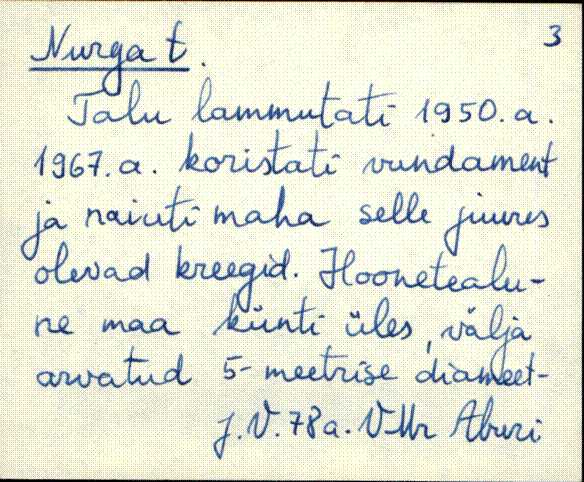 3
Nurga t.
Talu lammutati 1950.a.
1967.a. koristati vundament
ja raiuti maha selle juures
olevad kreegid. Hoonetealu-
ne maa künti üles, välja
arvatud 5-meetrise diameet-
J.V. 78a. V-Mr Aburi